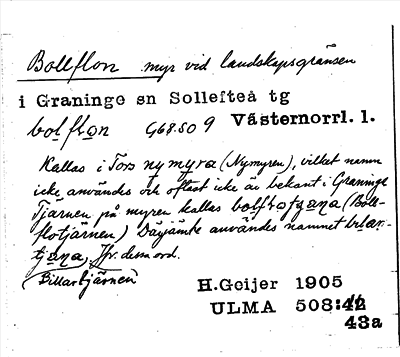 Bollflon myr vid landskapsgränsen
i Graninge sn Sollefteå tg
bolflon G68.50 9 Västernorrl. l.
Kallas i Tors nymyra (Nymyren), vilket namn
icke användes och oftast icke är bekant i Graninge
Tjärnen på myren kallas
flotjärnen) Därjämte användes namnet
tjana. Jfr. dessa ord.
Billartjärnen
H.Geijer 1905
ULMA 508:
43a